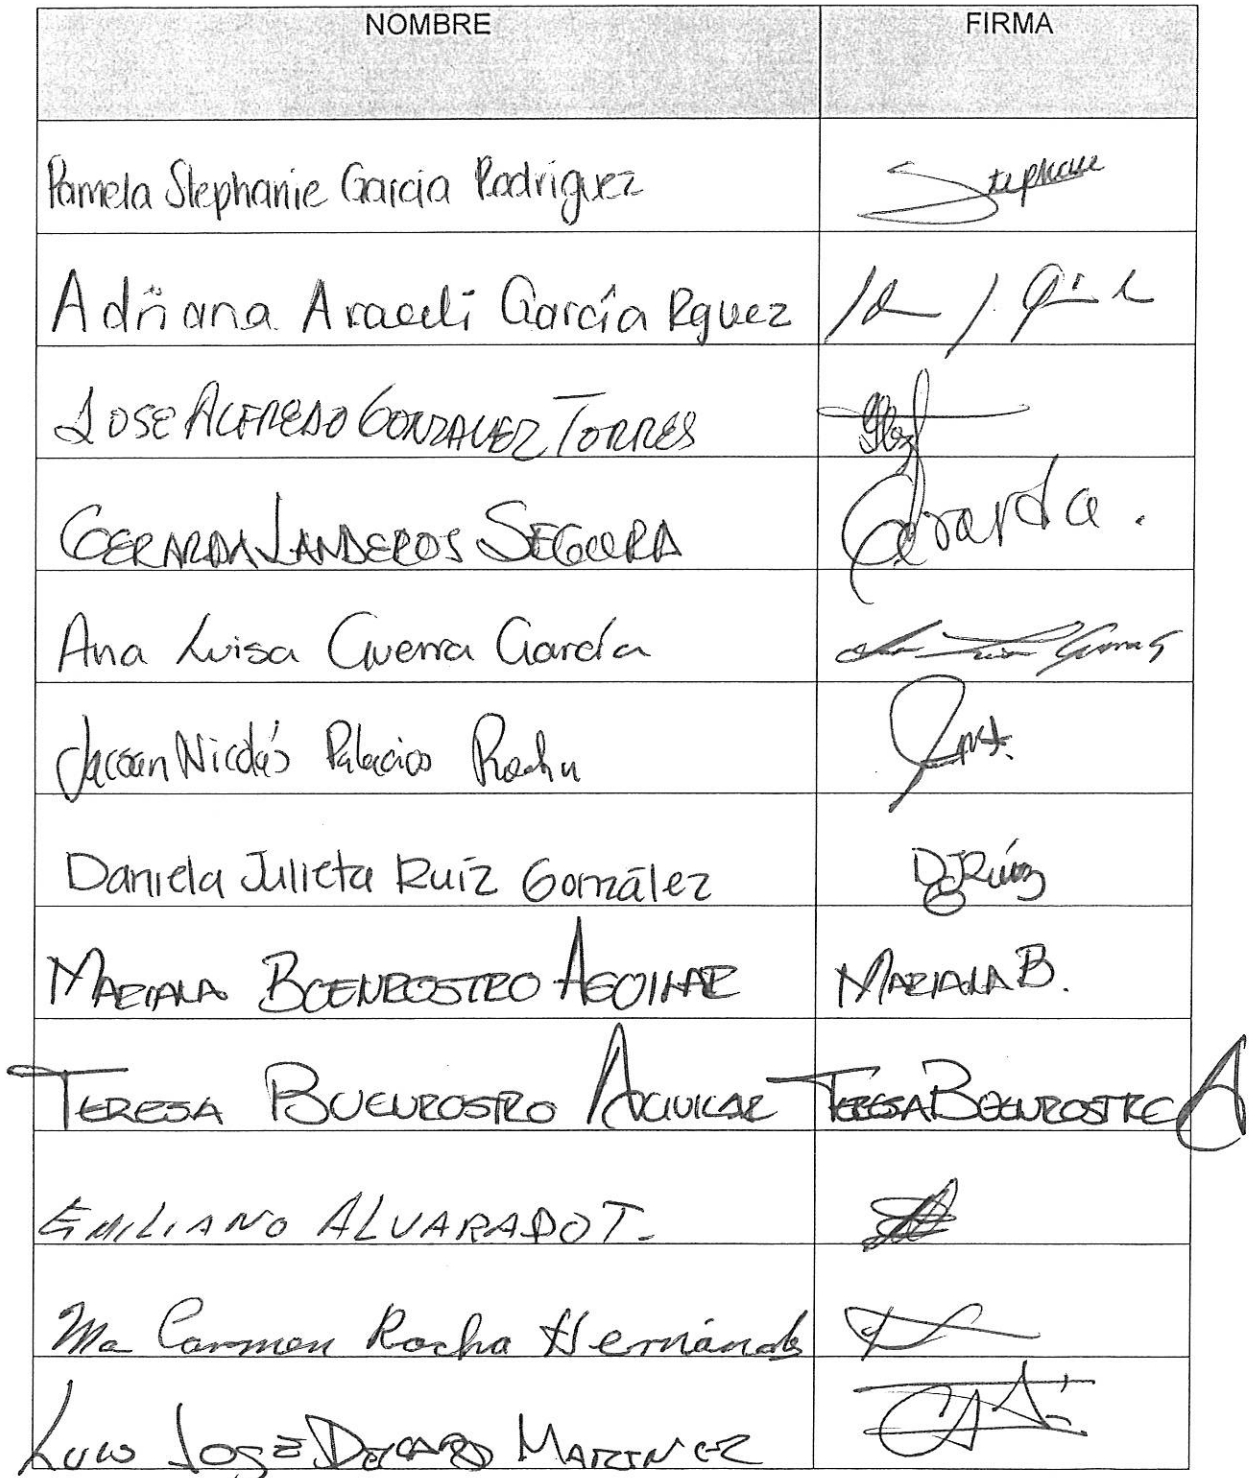 NOMBRE FIRMA
Pamela Stephanie Garcia Rodriguez Stephanie
Adriana Araceli García Rguez
JOSE ALFREDO GONZALEZ TORRES
GERARDA LANDEROS SEGURA Gerarda.
Ana Luisa Guerra García
Nicolás Palacios Rocha
Daniela Julieta Ruíz González DJRuíz
MARIANA BUENROSTRO AGUILAR MARIANA B.
TERESA BUENROSTRO AGUILAR TERESA BUENROSTRO A
EMILIANO ALVARADO T.
Ma Carmen Rocha Hernández
JOSE MARTINEZ